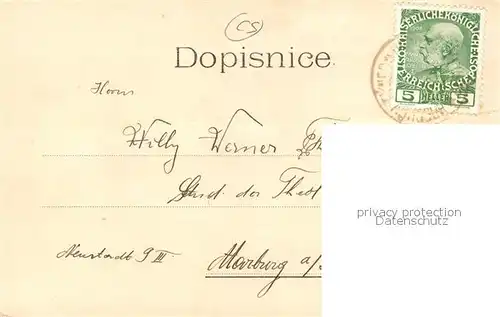 CS
Dopisnice.
KAISERLICHEKÖNIGLICHE
ÖSTERREICHISCHE POST
5 HELLER 5
Herrn
Willy Werner
Stud. der Theol
Neustadt 9 III
Marburg a/
privacy protection
Datenschutz